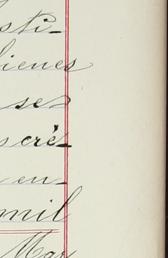 sti-
lienes
ses
s cré-
en-
mil
Mar